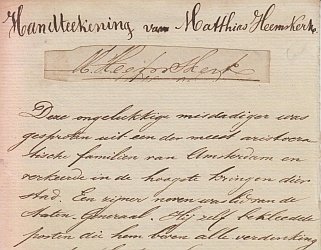 Handteekening van Matthias Heemskerk.
M. Heemskerk
Deze ongelukkige misdadiger was
gesproten uit een der meest aristocra-
tische familien van Amsterdam en
verkeerde in de hoogste kringen dier
stad. Een zijner neven was lid van de
Staten-Generaal. Hij zelf bekleedde
posten die hem boven alle verdenking